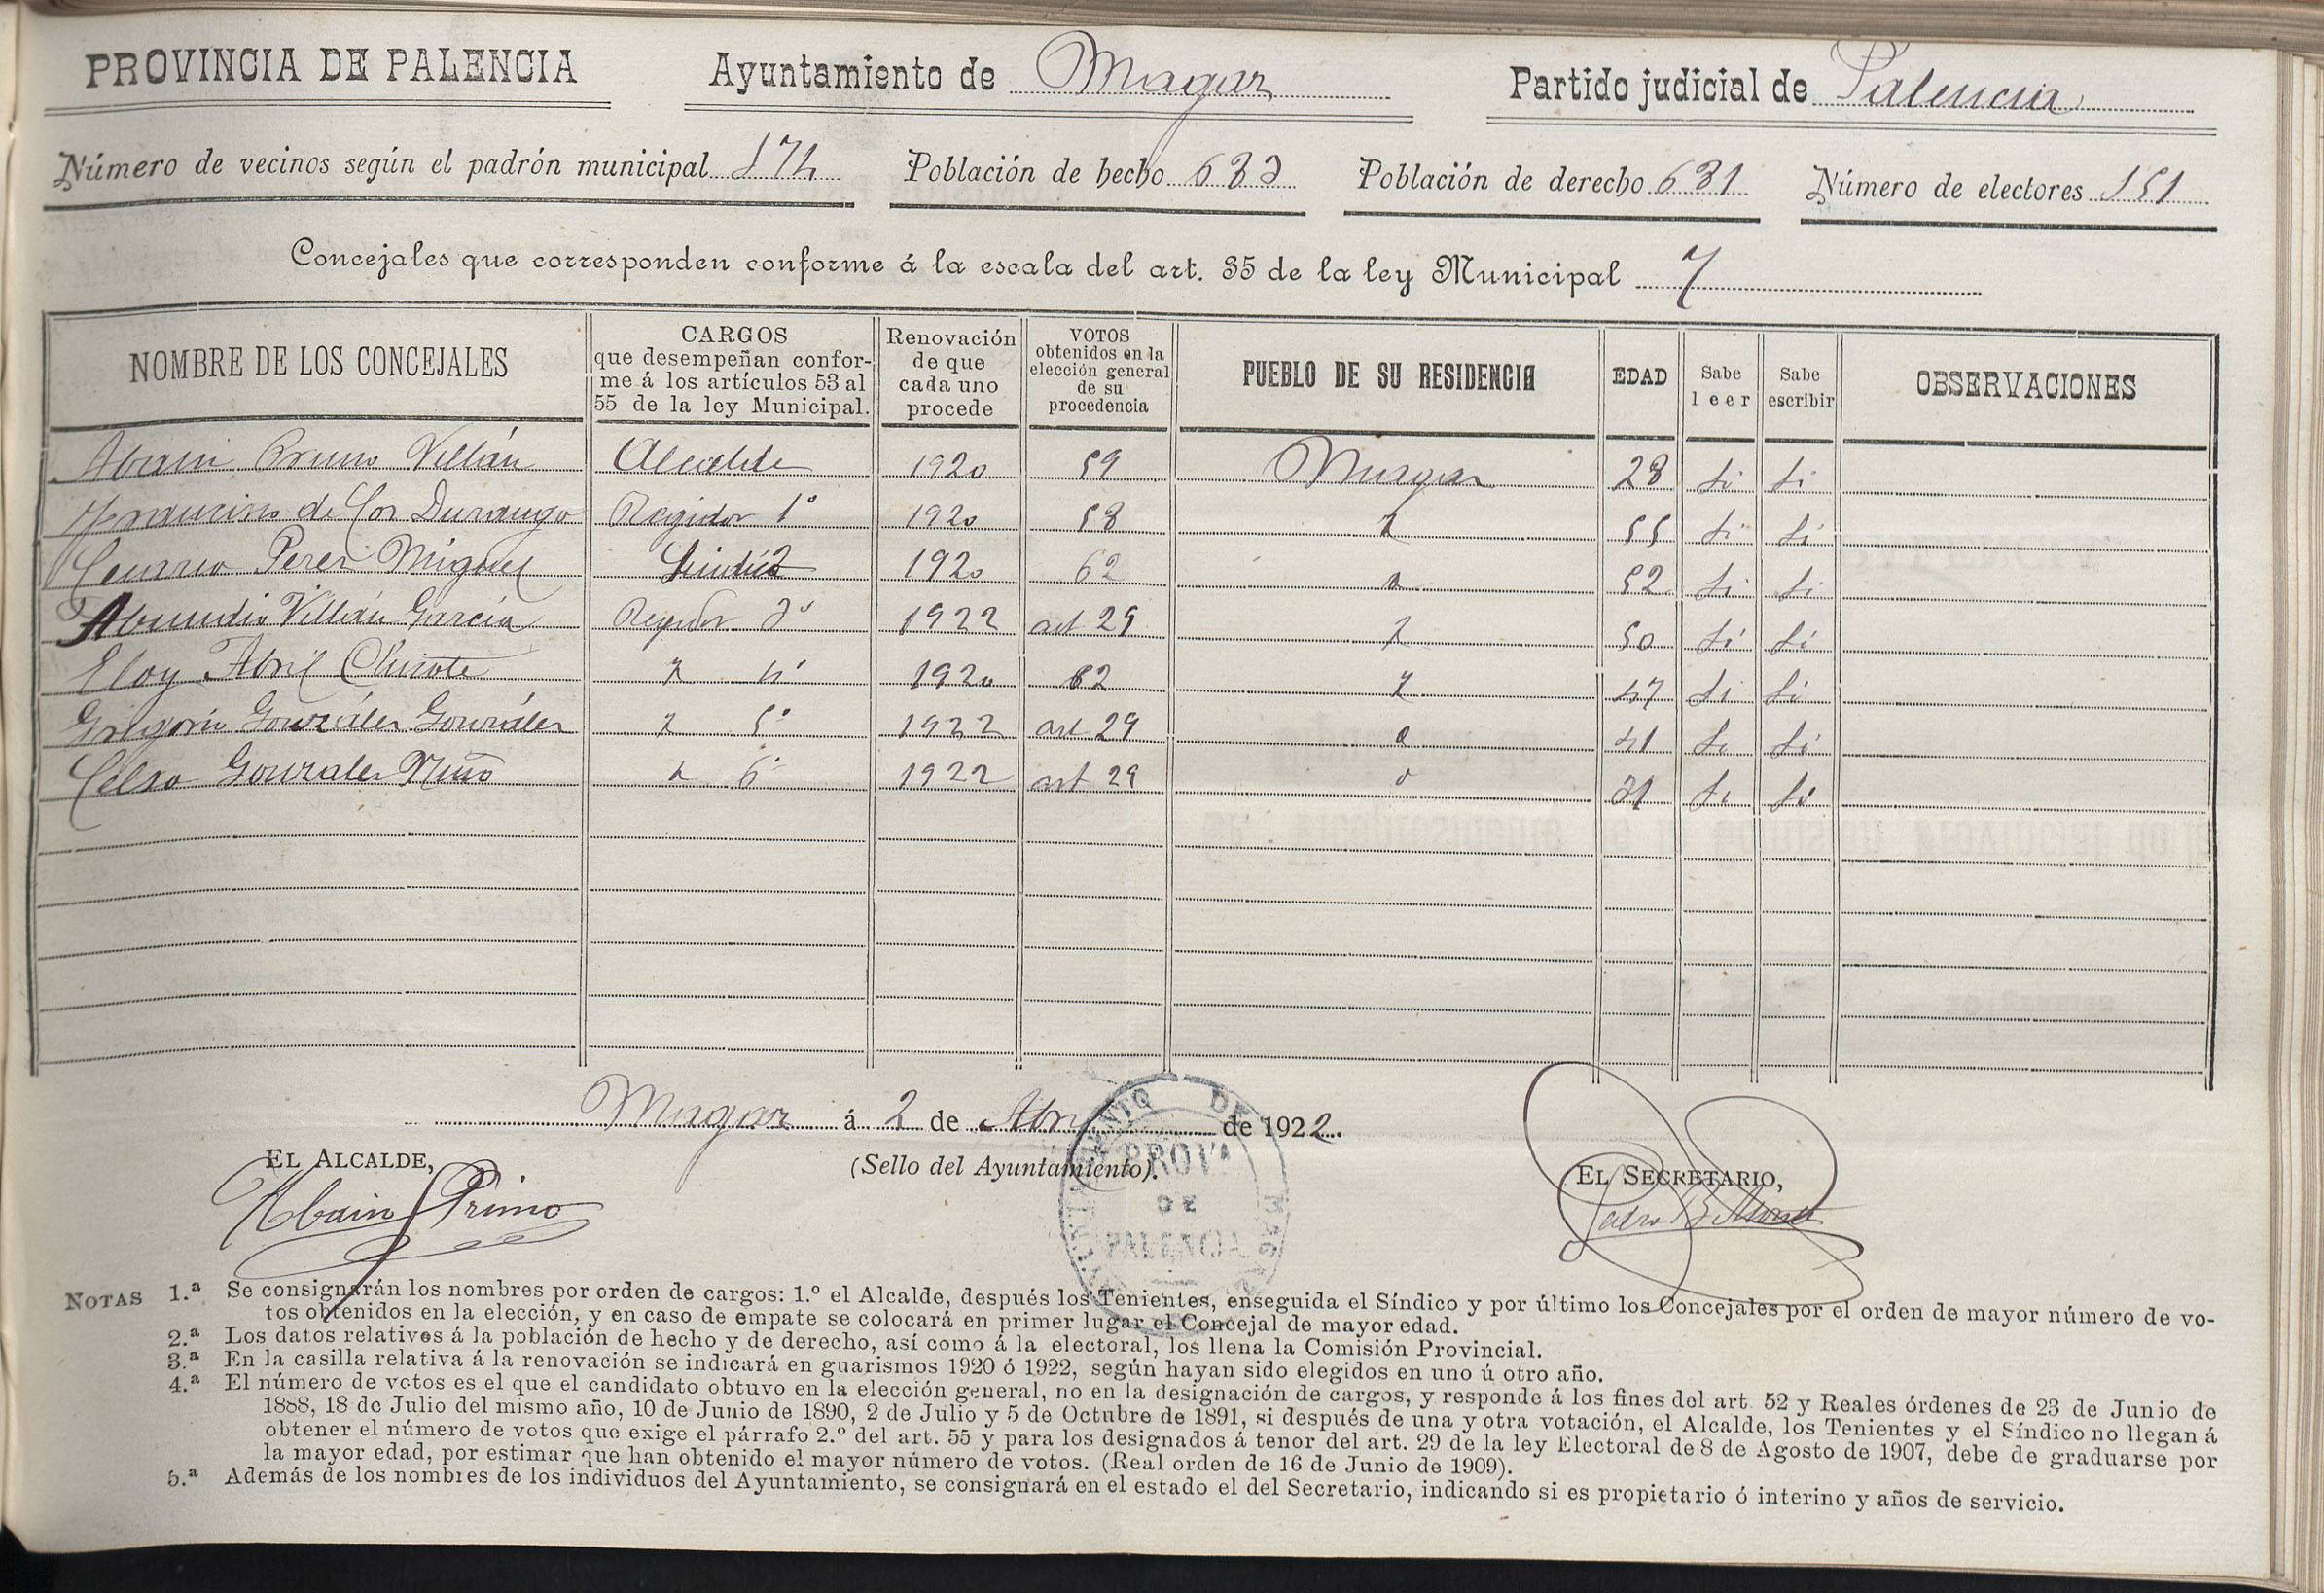 PROVINCIA DE PALENCIA Ayuntamiento de Magaz Partido judicial de Palencia
Número de vecinos según el padrón municipal 174 Población de hecho 683 Población de derecho 681 Número de electores 151
Concejales que corresponden conforme á la escala del art. 35 de la ley Municipal 7
NOMBRE DE LOS CONCEJALES
CARGOS
que desempeñan confor-
me á los artículos 53 al
55 de la ley Municipal.
Renovación
de que
cada uno
procede
VOTOS
obtenidos en la
elección general
de su
procedencia
PUEBLO DE SU RESIDENCIA
EDAD
Sabe
leer
Sabe
escribir
OBSERVACIONES
Abain Primo Villán Alcalde 1920 59 Magaz 28 Si Si
Francisco de Cos Durango Regidor 1º 1920 58 55 Si Si
Perez Miguel Sindico 1920 62 52 Si Si
Abundio Villán García Regidor 3º 1922 art 29 50 Si Si
Eloy Abril Chicote 4º 1920 62 47 Si Si
Gregorio González González 5º 1922 art 29 41 Si Si
Celso Gonzalez Niño 6º 1922 art 29 31 Si Si
Magaz á 2 de Abril de 1922.
EL ALCALDE,
Abain Primo
(Sello del Ayuntamiento).
DE
PROVª
DE
PALENCIA
MAGAZ
EL SECRETARIO,
Pedro
NOTAS 1.ª Se consignarán los nombres por orden de cargos: 1.º el Alcalde, después los Tenientes, enseguida el Síndico y por último los Concejales por el orden de mayor número de vo-
tos obtenidos en la elección, y en caso de empate se colocará en primer lugar el Concejal de mayor edad.
2.ª Los datos relativos á la población de hecho y de derecho, así como á la electoral, los llena la Comisión Provincial.
3.ª En la casilla relativa á la renovación se indicará en guarismos 1920 ó 1922, según hayan sido elegidos en uno ú otro año.
4.ª El número de votos es el que el candidato obtuvo en la elección general, no en la designación de cargos, y responde á los fines del art. 52 y Reales órdenes de 23 de Junio de
1888, 18 de Julio del mismo año, 10 de Junio de 1890, 2 de Julio y 5 de Octubre de 1891, si después de una y otra votación, el Alcalde, los Tenientes y el Síndico no llegan á
obtener el número de votos que exige el párrafo 2.º del art. 55 y para los designados á tenor del art. 29 de la ley Electoral de 8 de Agosto de 1907, debe de graduarse por
la mayor edad, por estimar que han obtenido el mayor número de votos. (Real orden de 16 de Junio de 1909).
5.ª Además de los nombres de los individuos del Ayuntamiento, se consignará en el estado el del Secretario, indicando si es propietario ó interino y años de servicio.